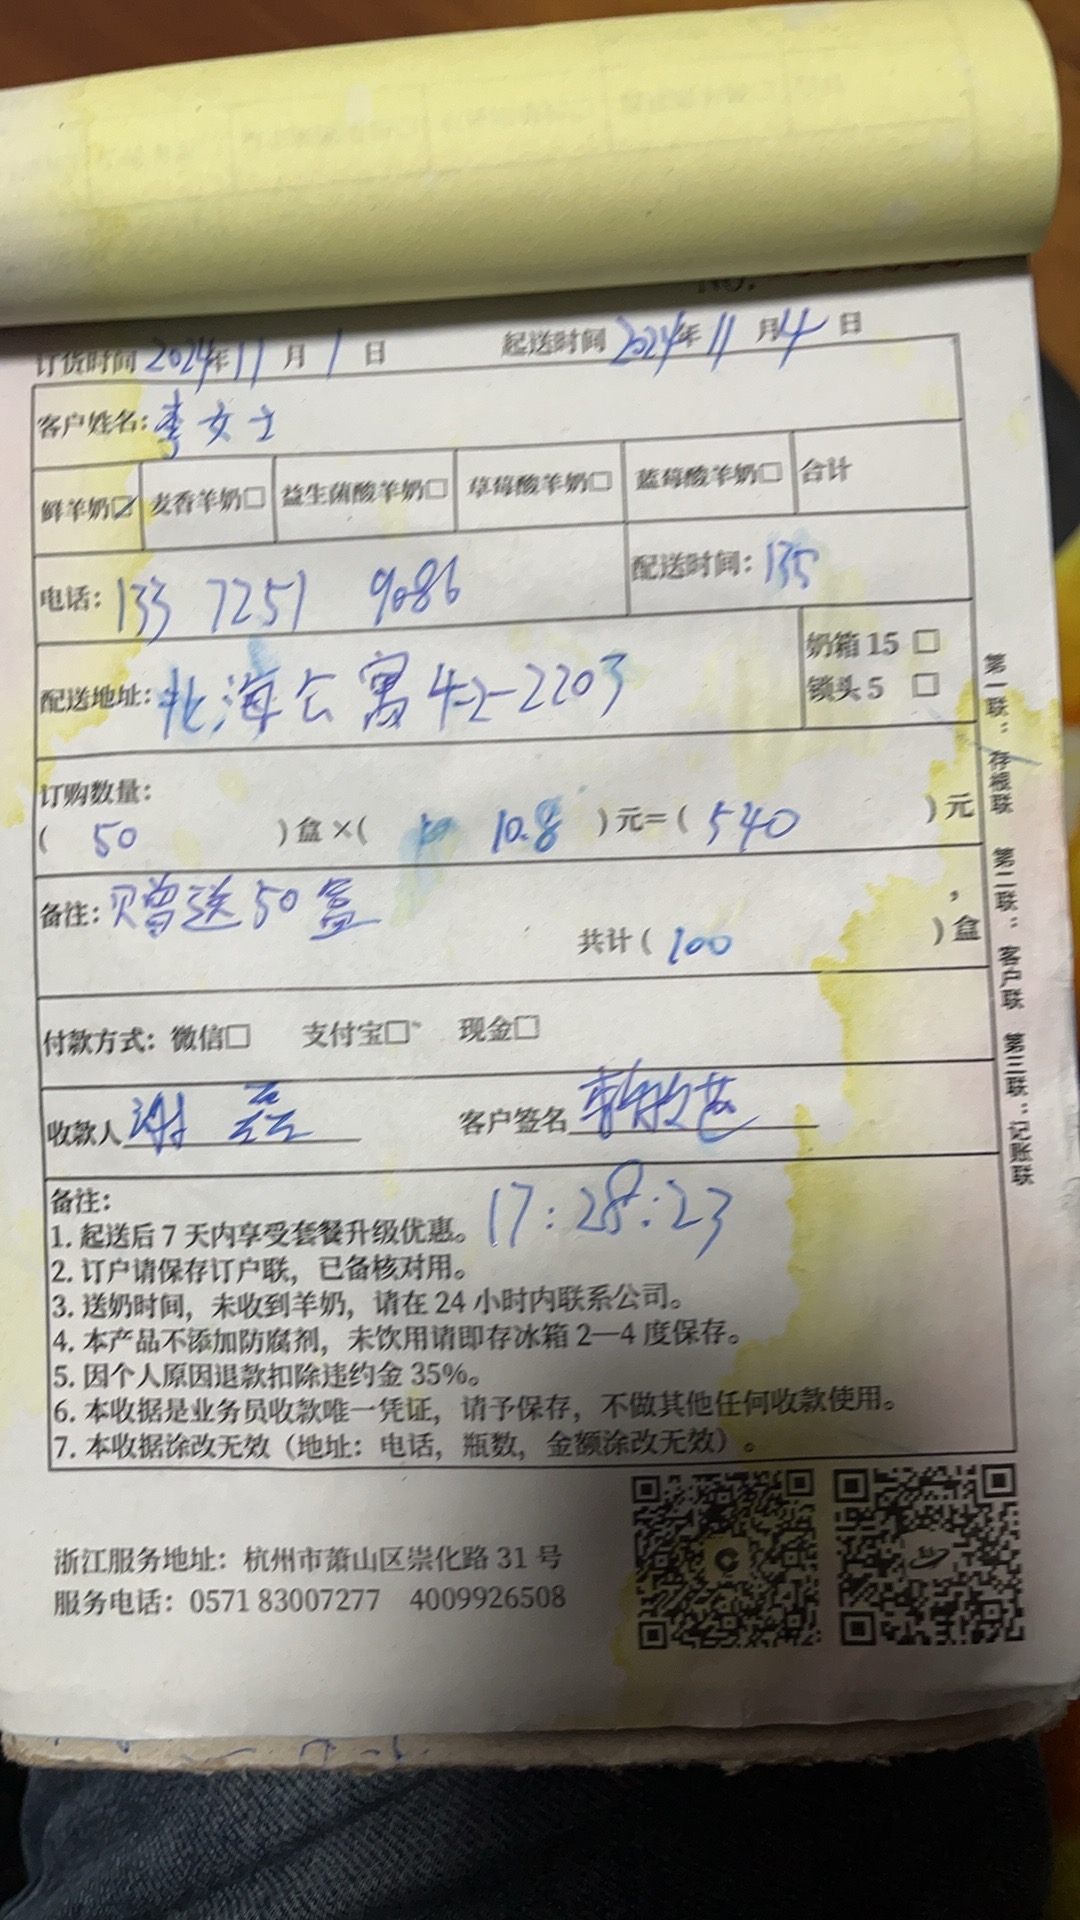 订货时间 2024年 11 月 1 日 起送时间 2024年 11 月 4 日
客户姓名: 李女士
鲜羊奶☑ 麦香羊奶□ 益生菌酸羊奶□ 草莓酸羊奶□ 蓝莓酸羊奶□ 合计
电话: 133 7251 9086 配送时间: 135
配送地址: 北海公寓 4-2-2203 奶箱 15 □
锁头 5 □
订购数量:
( 50 ) 盒 ×( 10.8 ) 元= ( 540 ) 元
备注: 赠送50盒 ,
共计 ( 100 ) 盒
付款方式: 微信□ 支付宝□ 现金□
收款人 谢磊 客户签名
备注: 17:28:23
1. 起送后 7 天内享受套餐升级优惠。
2. 订户请保存订户联，已备核对用。
3. 送奶时间，未收到羊奶，请在 24 小时内联系公司。
4. 本产品不添加防腐剂，未饮用请即存冰箱 2—4 度保存。
5. 因个人原因退款扣除违约金 35%。
6. 本收据是业务员收款唯一凭证，请予保存，不做其他任何收款使用。
7. 本收据涂改无效（地址：电话，瓶数，金额涂改无效）。
第一联：存根联 第二联：客户联 第三联：记账联
浙江服务地址：杭州市萧山区崇化路 31 号
服务电话：0571 83007277 4009926508